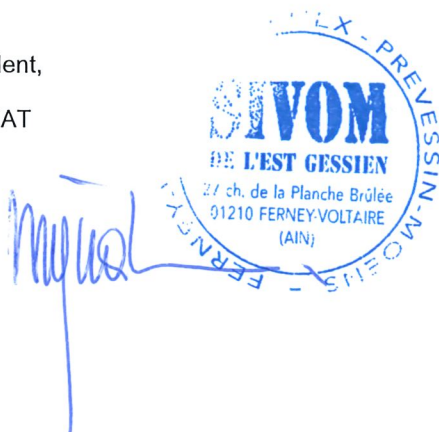 ent,
AT
SIVOM
DE L'EST GESSIEN
27 ch. de la Planche Brûlée
01210 FERNEY-VOLTAIRE
(AIN)
EX - PREVESSIN-MOENS - FERNEY-